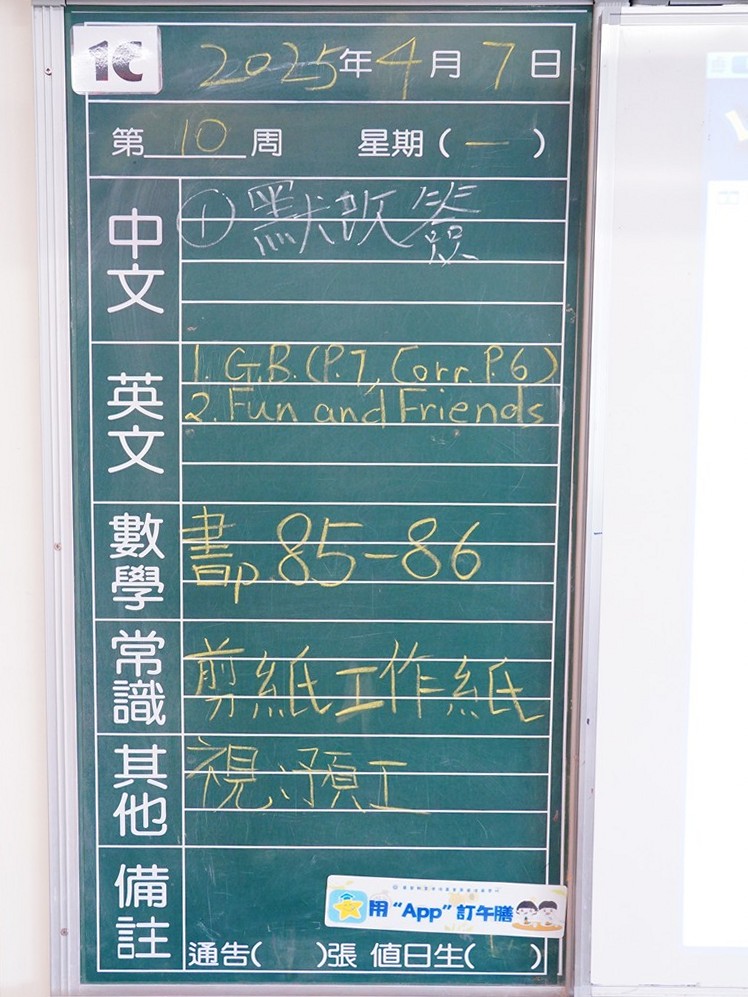 1C
2025年4月7日
第10周 星期(一)
中文
①默改簽
英文
1. G.B. (P.7, Corr. P.6)
2. Fun and Friends
數學
書p.85-86
常識
剪紙工作紙
其他
視:預工
備註
用“App”訂午膳
通告( )張 值日生( )